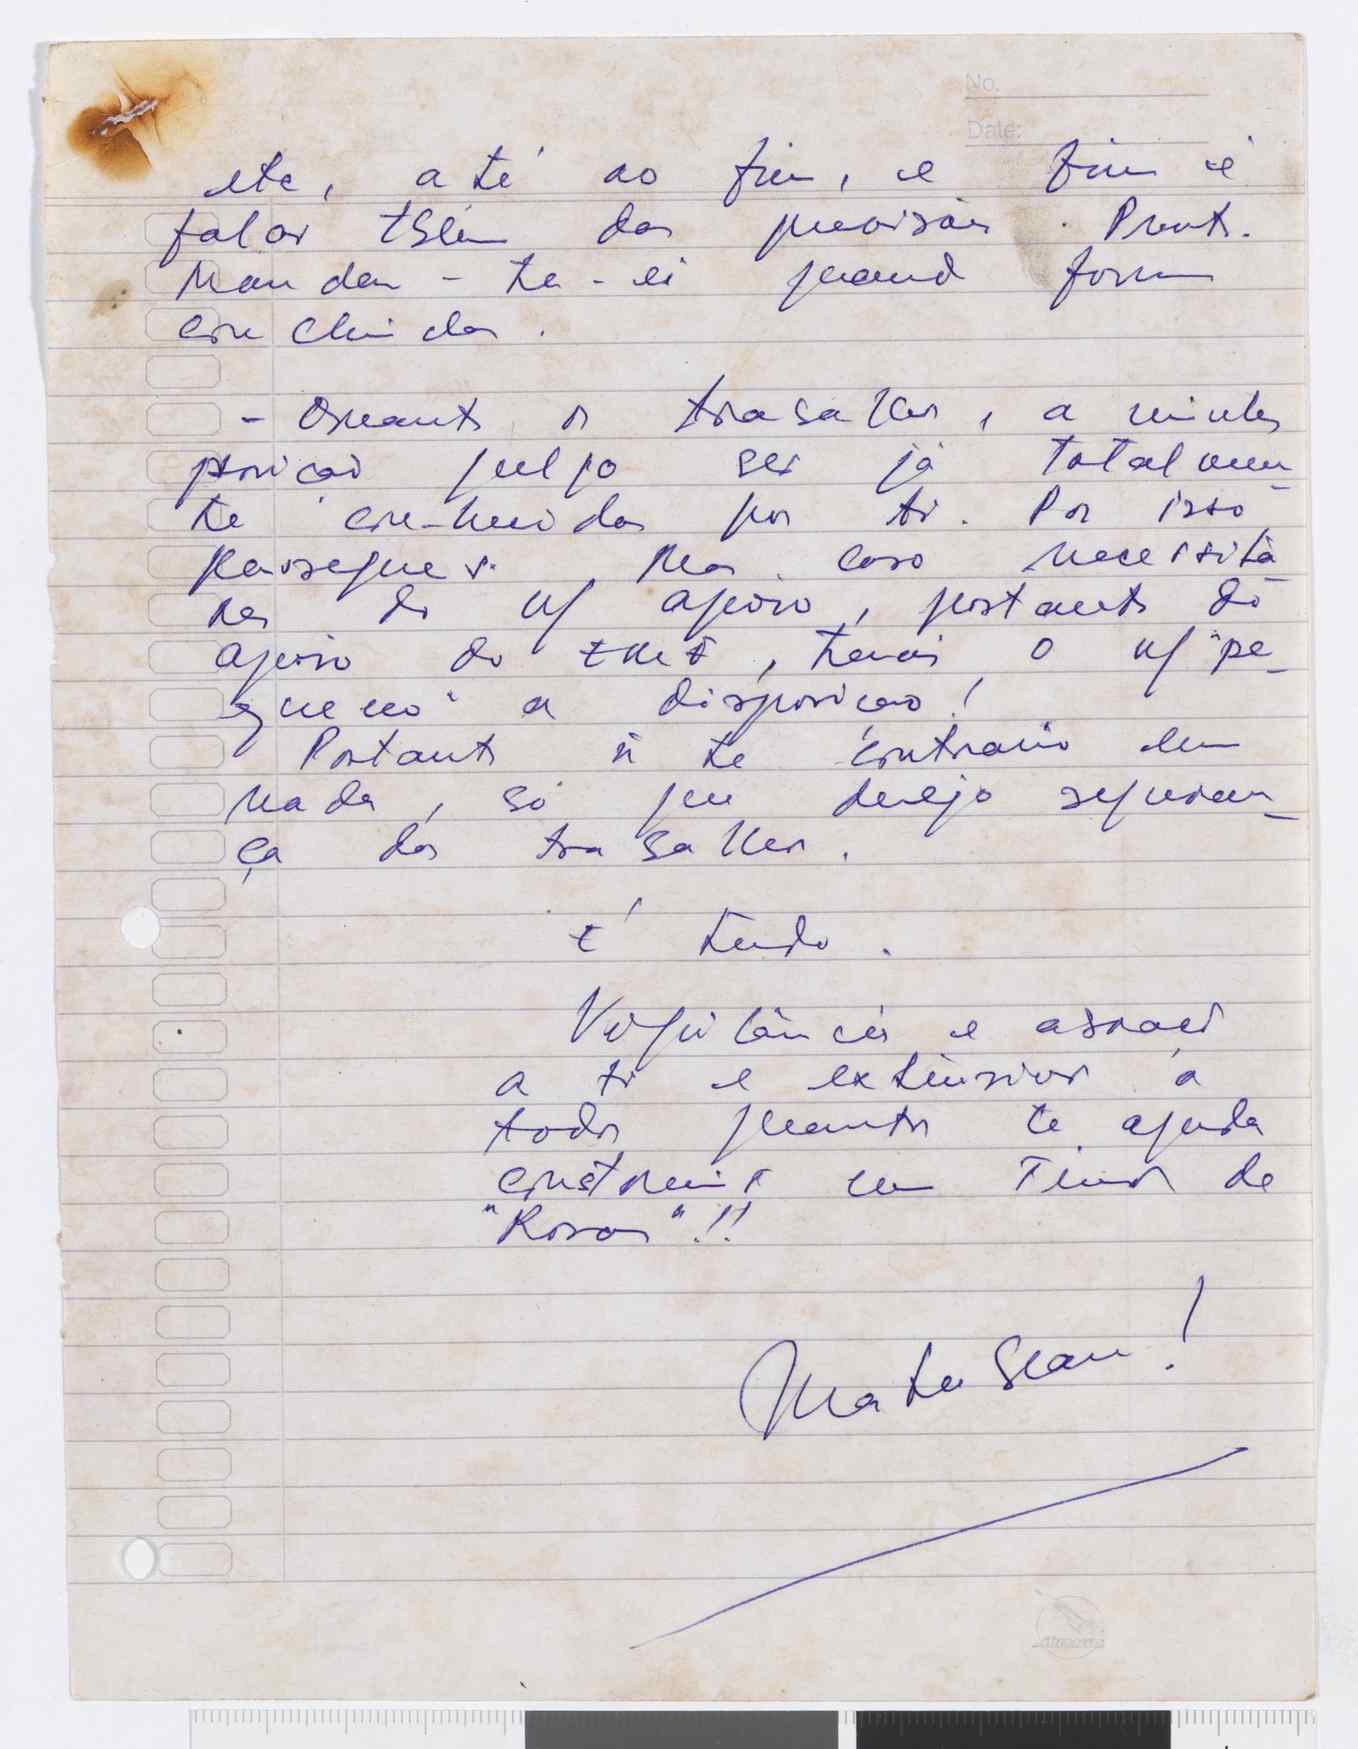 No.
Date:
etc, até ao fim, e fim é
falar tbém das previsões. Pront.
Mandar-te-ei quand forem
concluidas.
- Quanto os trabalhos, a minha
posicao julgo ser já totalmen-
te conhecida por ti. Por isso
prossegues. Mas caso necessita-
res do m/ apoio, portanto do
apoio do , terás o m/ "pe-
queno" a disposicao!
Portanto ñ te contrario em
nada, só que desejo seguran-
ça dos trabalhos.
É tudo.
Vigilância e abraços
a ti e extensivos à
todos quantos te ajuda
construir um Timor de
"Rosas"!!
Mata Bean!